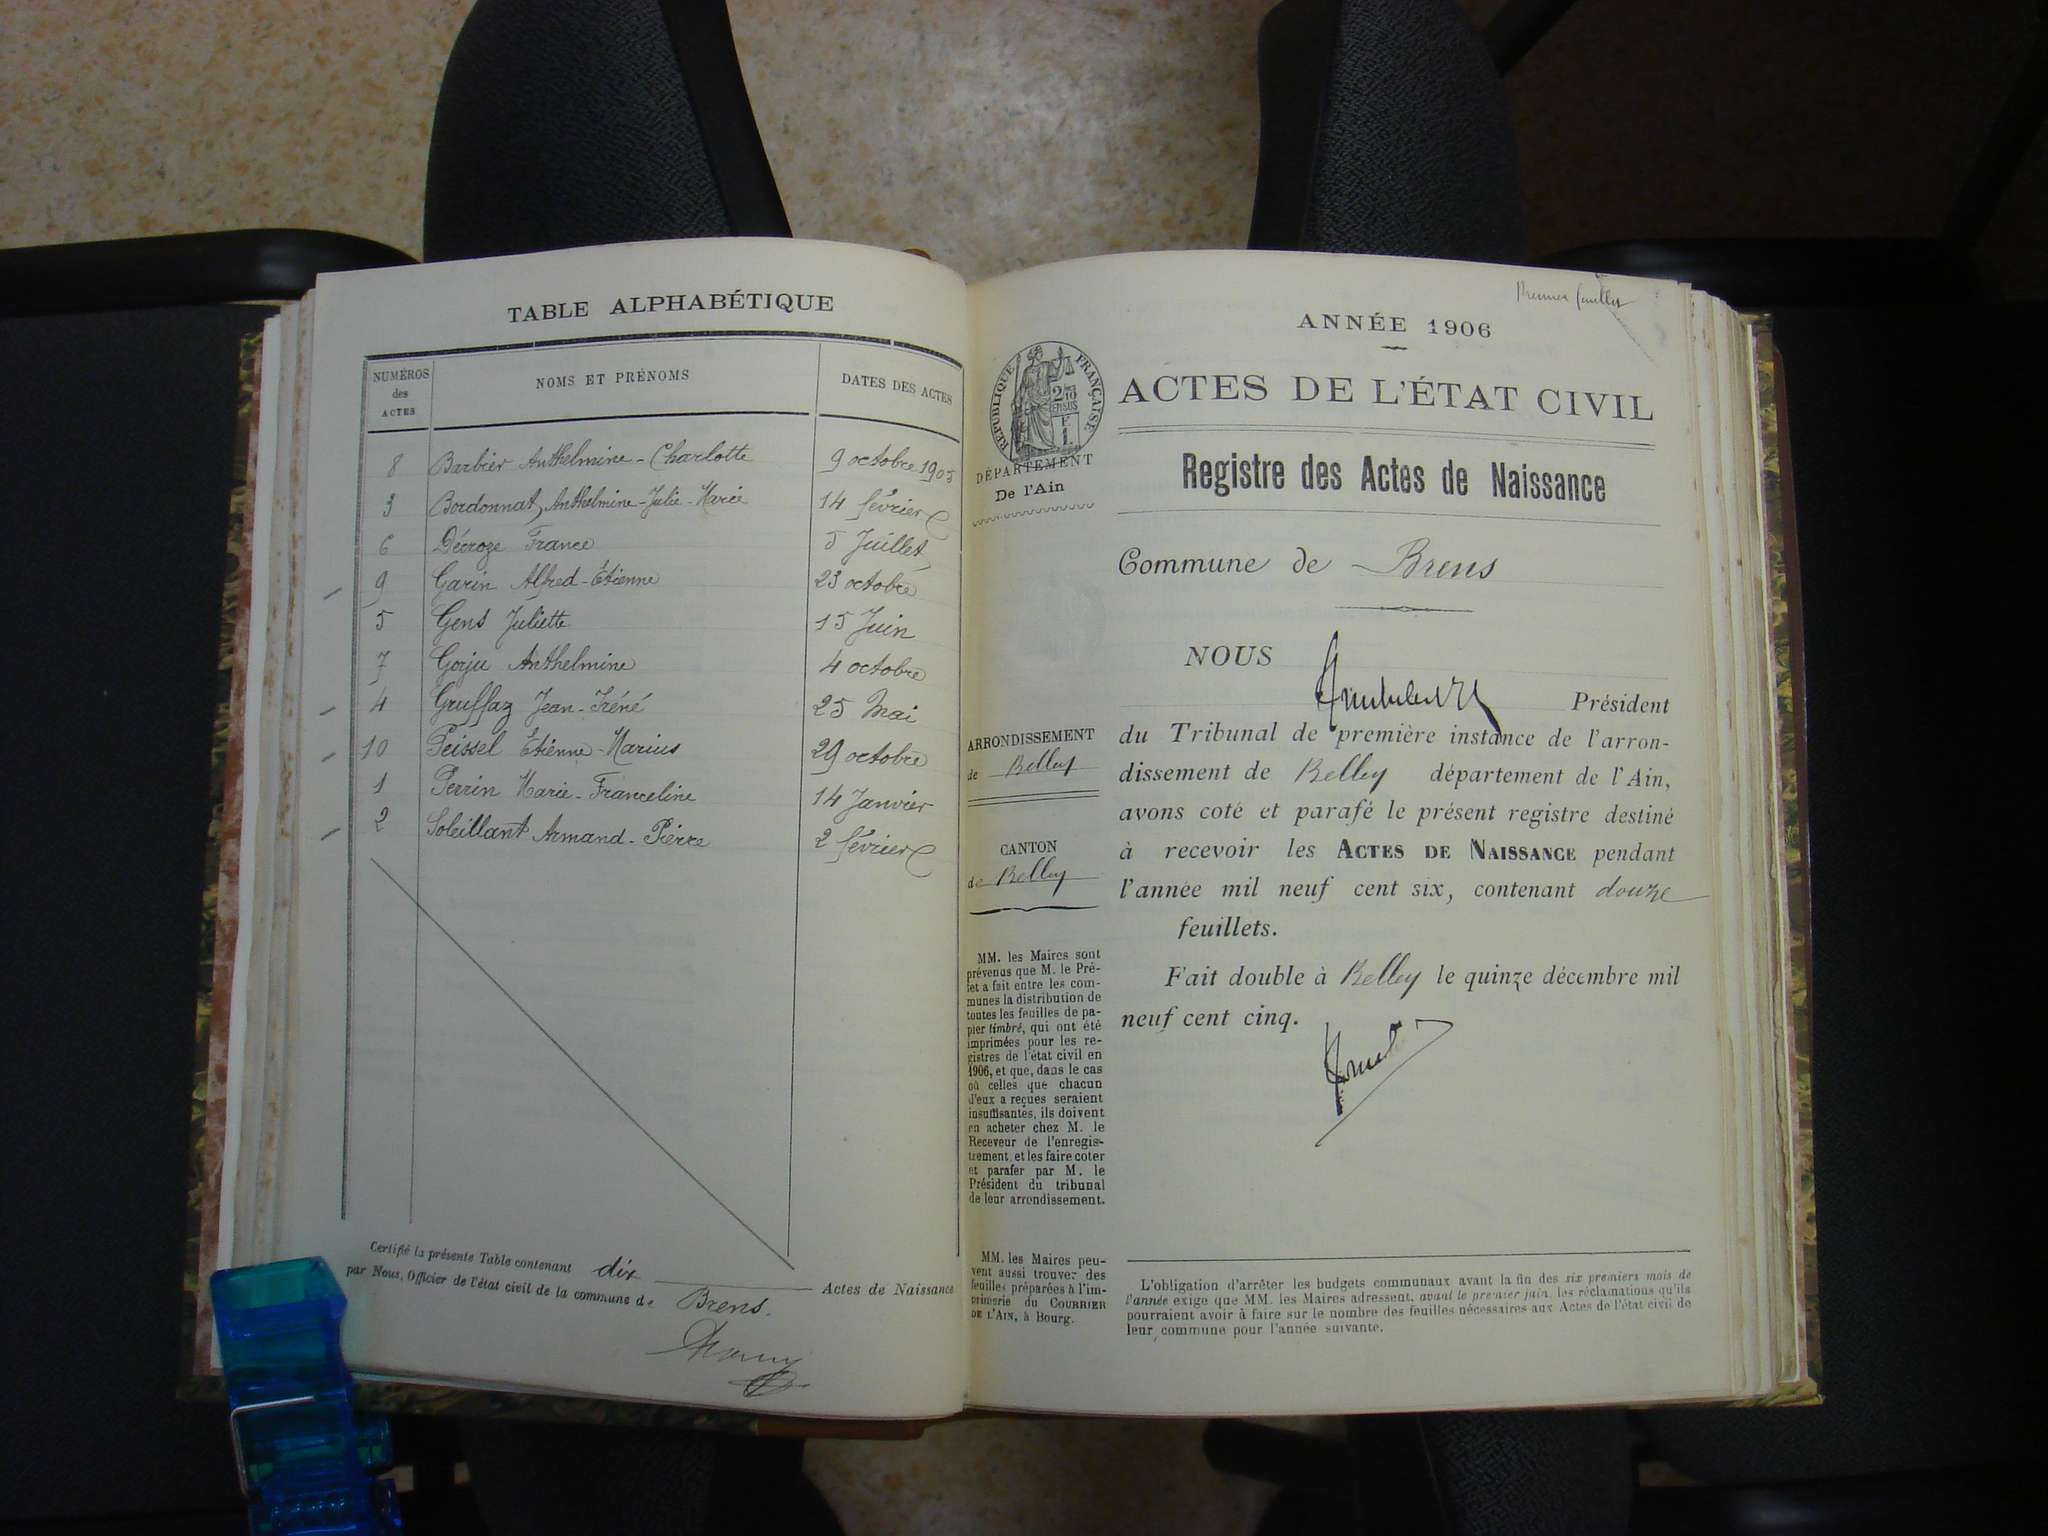 TABLE ALPHABÉTIQUE
NUMÉROS des ACTES
NOMS ET PRÉNOMS
DATES DES ACTES
8 Barbier Anthelmine - Charlotte 9 octobre 1905
3 Bordonnat, Anthelmine - Julie - Marie 14 février
6 Décroze France 5 Juillet
9 Garin Alfred - Étienne 23 octobre
5 Gens Juliette 15 Juin
7 Gorju Anthelmine 4 octobre
4 Gruffaz Jean - Iréné 25 Mai
10 Peissel Étienne - Marius 29 octobre
1 Perrin Marie - Franceline 14 Janvier
2 Soleillant Armand - Pierre 2 février
Certifié la présente Table contenant dix Actes de Naissance
par Nous, Officier de l'état civil de la commune de Brens.
Premier feuillet
ANNÉE 1906
RÉPUBLIQUE FRANÇAISE
2/10 EN SUS
F 1.
ACTES DE L'ÉTAT CIVIL
DÉPARTEMENT
De l'Ain
Registre des Actes de Naissance
Commune de Brens
NOUS
Président
du Tribunal de première instance de l'arron-
dissement de Belley département de l'Ain,
avons coté et parafé le présent registre destiné
à recevoir les ACTES DE NAISSANCE pendant
l'année mil neuf cent six, contenant douze
feuillets.
Fait double à Belley le quinze décembre mil
neuf cent cinq.
ARRONDISSEMENT
de Belley
CANTON
de Belley
MM. les Maires sont
prévenus que M. le Pré-
fet a fait entre les com-
munes la distribution de
toutes les feuilles de pa-
pier timbré, qui ont été
imprimées pour les re-
gistres de l'état civil en
1906, et que, dans le cas
où celles que chacun
d'eux a reçues seraient
insuffisantes, ils doivent
en acheter chez M. le
Receveur de l'enregis-
trement, et les faire coter
et parafer par M. le
Président du tribunal
de leur arrondissement.
MM. les Maires peu-
vent aussi trouver des
feuilles préparées à l'im-
primerie du COURRIER
DE L'AIN, à Bourg.
L'obligation d'arrêter les budgets communaux avant la fin des six premiers mois de
l'année exige que MM. les Maires adressent, avant le premier juin, les réclamations qu'ils
pourraient avoir à faire sur le nombre des feuilles nécessaires aux Actes de l'état civil de
leur commune pour l'année suivante.